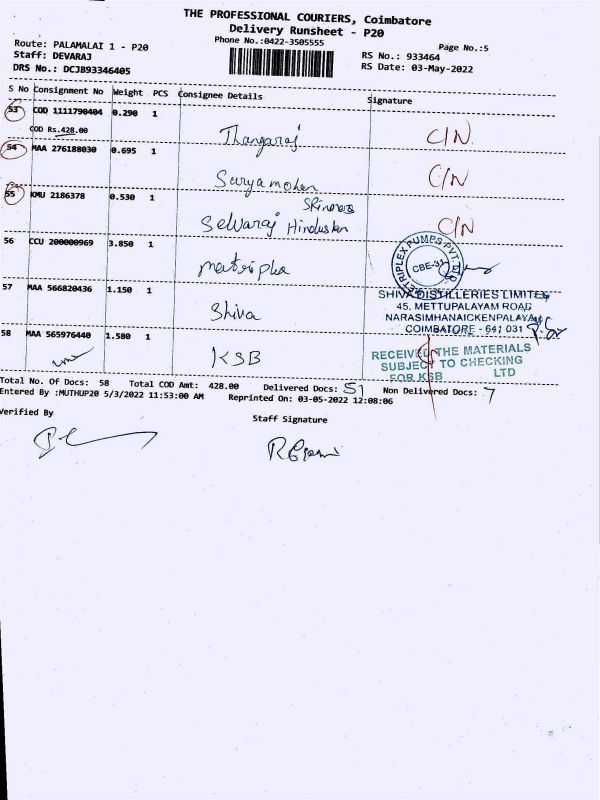 THE PROFESSIONAL COURIERS, Coimbatore
Delivery Runsheet - P20
Route: PALAMALAI 1 - P20
Phone No.:0422-3505555
Page No.:5
Staff: DEVARAJ
RS No.: 933464
DRS No.: DCJB93346405
RS Date: 03-May-2022
S No Consignment No Weight PCS Consignee Details Signature
53 COD 1111790404 0.290 1
COD Rs.428.00 Thangaraj C/N
54 MAA 276188030 0.695 1
Suryamohan C/N
55 KMU 2186378 0.530 1
Selvaraj Hindustan C/N
56 CCU 200000969 3.850 1
METRIPLEX PUMPS PVT. LTD.
CBE-31
57 MAA 566820436 1.150 1
Shiva
SHIVA DISTILLERIES LIMITED
45, METTUPALAYAM ROAD
NARASIMHANAICKENPALAYAM
COIMBATORE - 641 031
58 MAA 565976440 1.580 1
KSB
RECEIVED THE MATERIALS
SUBJECT TO CHECKING
FOR KSB LTD
Total No. Of Docs: 58 Total COD Amt: 428.00 Delivered Docs: 51 Non Delivered Docs: 7
Entered By :MUTHUP20 5/3/2022 11:53:00 AM Reprinted On: 03-05-2022 12:08:06
Verified By
Staff Signature